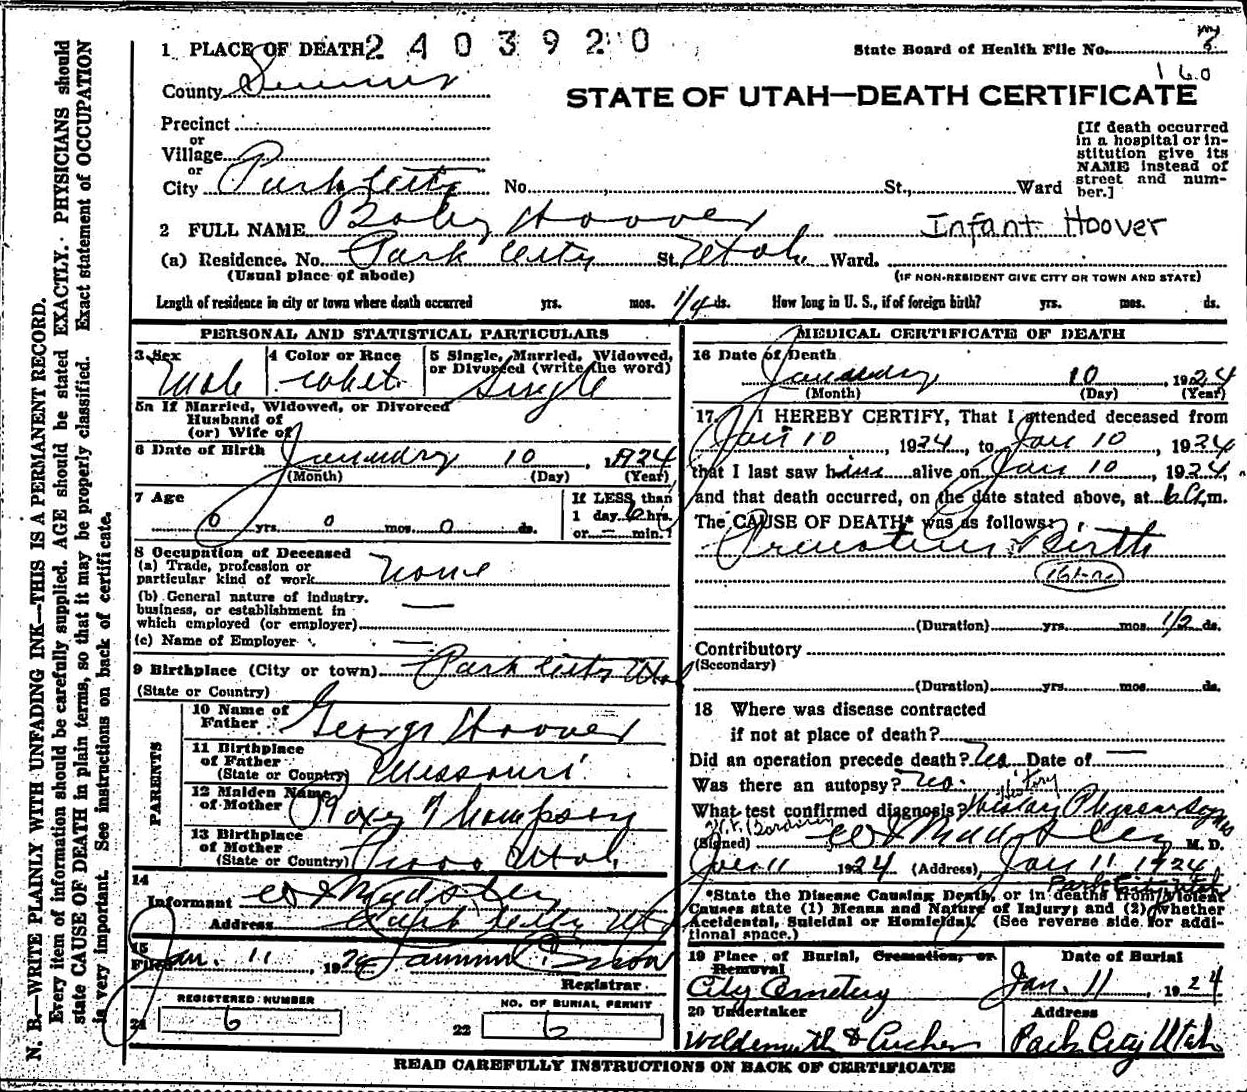 N. B.—WRITE PLAINLY WITH UNFADING INK—THIS IS A PERMANENT RECORD.
Every item of information should be carefully supplied. AGE should be stated EXACTLY. PHYSICIANS should
state CAUSE OF DEATH in plain terms, so that it may be properly classified. Exact statement of OCCUPATION
is very important. See instructions on back of certificate.
1 PLACE OF DEATH 2403920
State Board of Health File No.
160
County Summit
STATE OF UTAH—DEATH CERTIFICATE
Precinct
or
Village
or
City Park City No. St., Ward
[If death occurred
in a hospital or in-
stitution give its
NAME instead of
street and num-
ber.]
2 FULL NAME Baby Hoover Infant Hoover
(a) Residence. No. Park City St. Utah Ward.
(Usual place of abode) (IF NON-RESIDENT GIVE CITY OR TOWN AND STATE)
Length of residence in city or town where death occurred yrs. mos. 1/4 ds. How long in U. S., if of foreign birth? yrs. mos. ds.
PERSONAL AND STATISTICAL PARTICULARS
3 Sex 4 Color or Race 5 Single, Married, Widowed,
or Divorced (write the word)
Male white Single
5a If Married, Widowed, or Divorced
Husband of
(or) Wife of
6 Date of Birth January 10, 1924
(Month) (Day) (Year)
7 Age If LESS than
1 day 6 hrs.
0 yrs. 0 mos. 0 ds. or — min.?
8 Occupation of Deceased
(a) Trade, profession or
particular kind of work None
(b) General nature of industry,
business, or establishment in
which employed (or employer) —
(c) Name of Employer —
9 Birthplace (City or town) Park City Utah
(State or Country)
PARENTS
10 Name of
Father George Hoover
11 Birthplace
of Father
(State or Country) Missouri
12 Maiden Name
of Mother Roxey Thompson
13 Birthplace
of Mother
(State or Country) Provo Utah
14
Informant
Address Park City Ut
15
Filed Jan. 11 1924
Registrar
REGISTERED NUMBER NO. OF BURIAL PERMIT
21 6 22 6
MEDICAL CERTIFICATE OF DEATH
16 Date of Death
January 10, 1924
(Month) (Day) (Year)
17. I HEREBY CERTIFY, That I attended deceased from
Jan 10 1924, to Jan 10, 1924
that I last saw him alive on Jan 10, 1924,
and that death occurred, on the date stated above, at 6 a.m.
The CAUSE OF DEATH* was as follows:
Premature Birth
(Duration) yrs. mos. 1/2 ds.
Contributory
(Secondary)
(Duration) yrs. mos. ds.
18 Where was disease contracted
if not at place of death?
Did an operation precede death? No Date of —
Was there an autopsy? No.
What test confirmed diagnosis? History Physical Signs
(Signed) M. D.
Jan 11 1924 (Address) Jan 11 1924
Park City Utah
*State the Disease Causing Death, or in deaths from Violent
Causes state (1) Means and Nature of Injury; and (2) whether
Accidental, Suicidal or Homicidal. (See reverse side for addi-
tional space.)
19 Place of Burial, Cremation, or
Removal
City Cemetery
Date of Burial
Jan. 11, 1924
20 Undertaker
Address
Park City Utah
READ CAREFULLY INSTRUCTIONS ON BACK OF CERTIFICATE